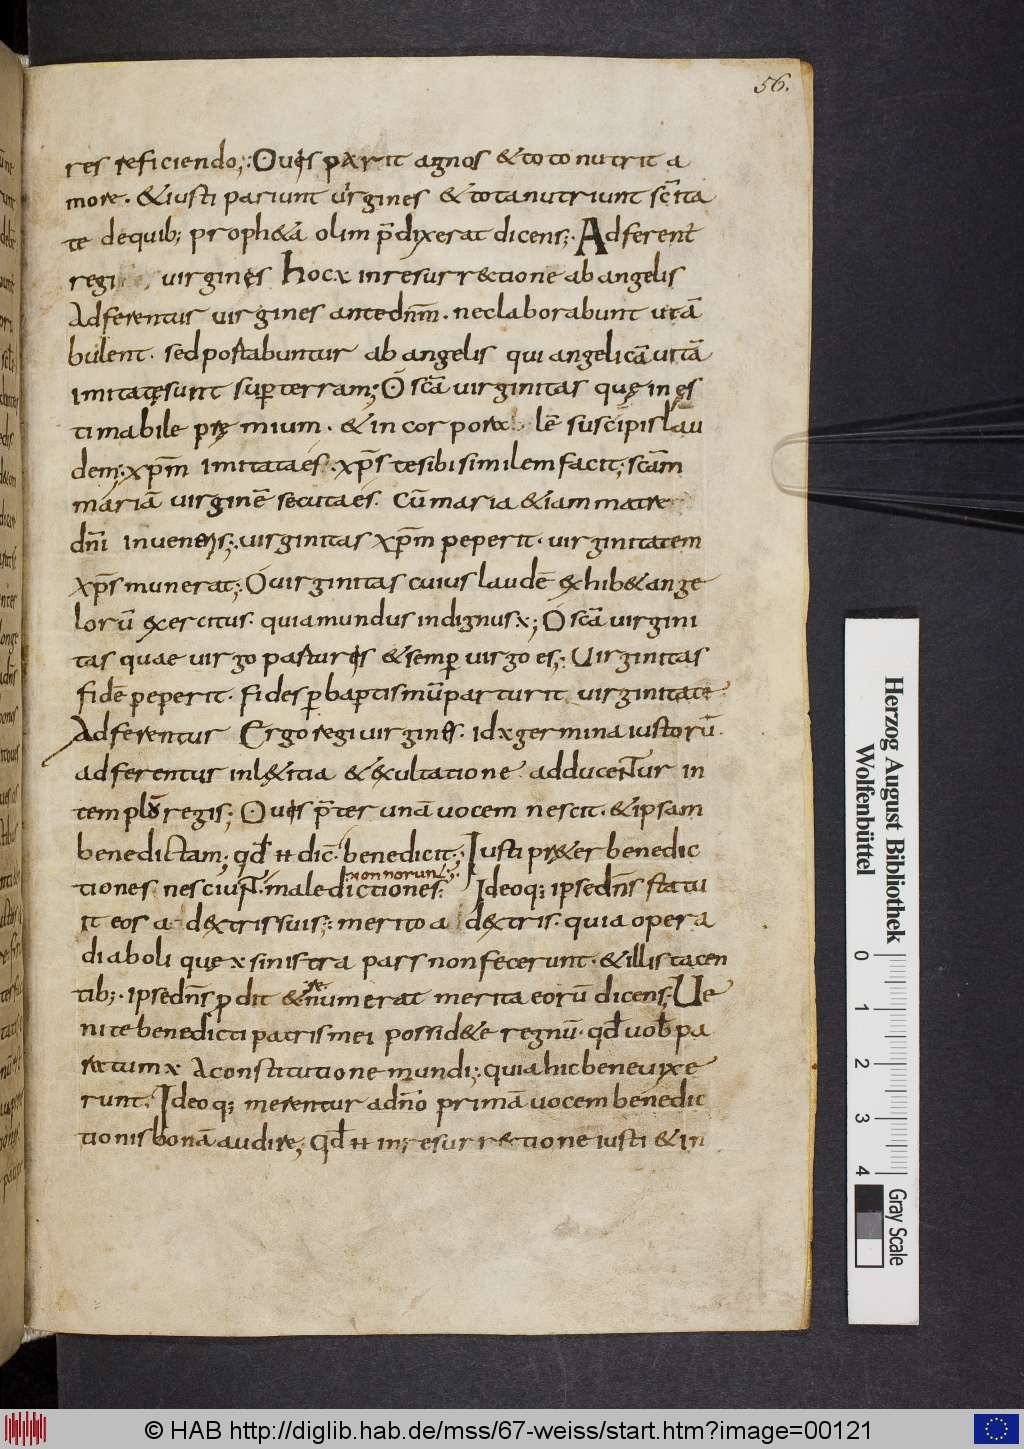 56.
res reficiendo;: Oues parit agnos & toto nutrit a
more. & iusti pariunt uirgines & tota nutriunt sc̄ita
te de quib; proph&ā olim p̄dixerat dicens;. Adferent̄
regi uirgines hoc x in resurrectione ab angelis
Adferentur uirgines ante dn̄m. nec laborabunt ut ā
bulent. sed portabuntur ab angelis qui angelicā uitā
imitatę sunt sup terram; O sc̄a uirginitas quę in ęs
timabile pręmium. & in corpore lē suscipis lau
dem; xp̄m imitata es. xp̄s te sibi similem facit; sc̄am
mariā uirginē secuta es. Cū maria & iam matre
dn̄i inuenis;. uirginitas xp̄m peperit. uirginitatem
xp̄s munerat; O uirginitas cuius laudē exhib& ange
lorū exercitus. quia mundus indignus x; O sc̄a uirgini
tas quae uirgo parturis & semp uirgo es;. Uirginitas
fidē peperit. fides p baptismū parturit uirginitatē
Adferentur Ergo regi uirgines. id x germina iustorū.
adferentur in lętitia & exultatione adducentur in
templo regis; Oues p̄ter unā uocem nescit. & ipsam
benedictam; qd̄ ħ dic̄. benedicit;. Iusti pręter benedic
x non norunt;.
tiones nesciunt. maledictiones. Ideoq; ipse dn̄s statu
it eos a dextris suis;. merito a dextris. quia opera
diaboli quę x sinistra pars non fecerunt. & illis tacen
re
tib;. ipse dn̄s pdit & numerat merita eorū dicens; Ue
nite benedicti patris mei possid&e regnū. qd̄ uob̄ pa
ratum x A constitutione mundi; quia hic bene uixe
runt. Ideoq; merentur adn̄o primā uocem benedic
tionis bonā audire; qd̄ ħ in resurrectione iusti & in
Herzog August Bibliothek
Wolfenbüttel
0 1 2 3 4
Gray Scale
© HAB http://diglib.hab.de/mss/67-weiss/start.htm?image=00121